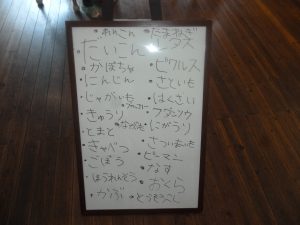 ・れんこん
・だいこん
・かぼちゃ
・にんじん
・じゃがいも
・きゅうり
・とまと
・キャベつ
・ごぼう
・ほうれんそう
・かぶ
・たまねぎ
・レタス
・ピクルス
・さといも
・はくさい
・にがうり
・さつまいも
・ピーマン
・なす
・おくら
・とうもろこし